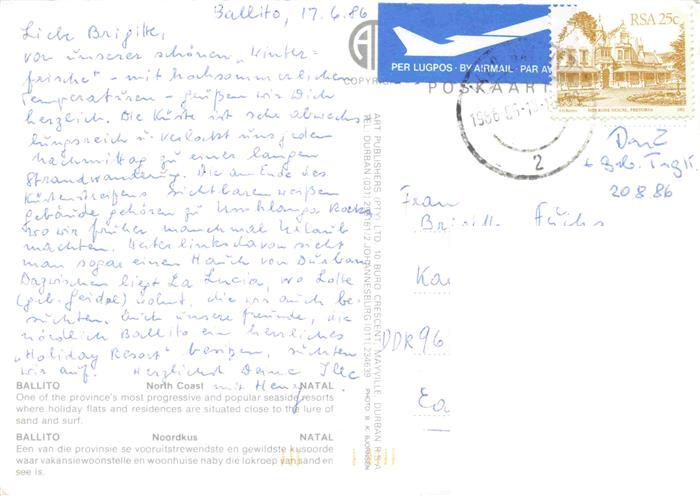 Ballito, 17.6.86
Liebe Brigitte,
von unserer schönen „Winter=
frische“ - mit hochsommerlichen
Temperaturen - grüßen wir Dich
herzlich. Die Küste ist sehr abwechs
lungsreich u. verlockt uns jeden
Nachmittag zu einer langen
Strandwanderung. Die am Ende des
Küstenstreifens sichtbaren weißen
Gebäude gehören zu Umhlanga Rocks
wo wir früher manchmal Urlaub
machten. Weiter links davon sieht
man sogar einen Hauch von Durban
Dazwischen liegt La Lucia, wo Lotte
(geb. Seidel) wohnt, die wir auch be-
suchten. Auch unsere Freunde, die
nördlich Ballito ein herrliches
„Holiday Resort“ besitzen, suchten
wir auf. Herzlichst Deine Ilse
mit Henry
BALLITO North Coast NATAL
One of the province's most progressive and popular seaside resorts
where holiday flats and residences are situated close to the lure of
sand and surf.
BALLITO Noordkus NATAL
Een van die provinsie se vooruitstrewendste en gewildste kusoorde
waar vakansiewoonstelle en woonhuise naby die lokroep van sand en
see is.
COPYRIGHT
ART PUBLISHERS (PTY) LTD. 10 BURG CRESCENT, MAYVILLE DURBAN R.S.A.
TEL. DURBAN (031)
JOHANNESBURG (011) 234639
PHOTO: R. K. BJORNSEN
PER LUGPOS · BY AIRMAIL · PAR AV
POSKAART
RSA 25c
PRETORIA
1986
2
20 8 86
Frau
Brigitte Füchs
Ka
DDR 96